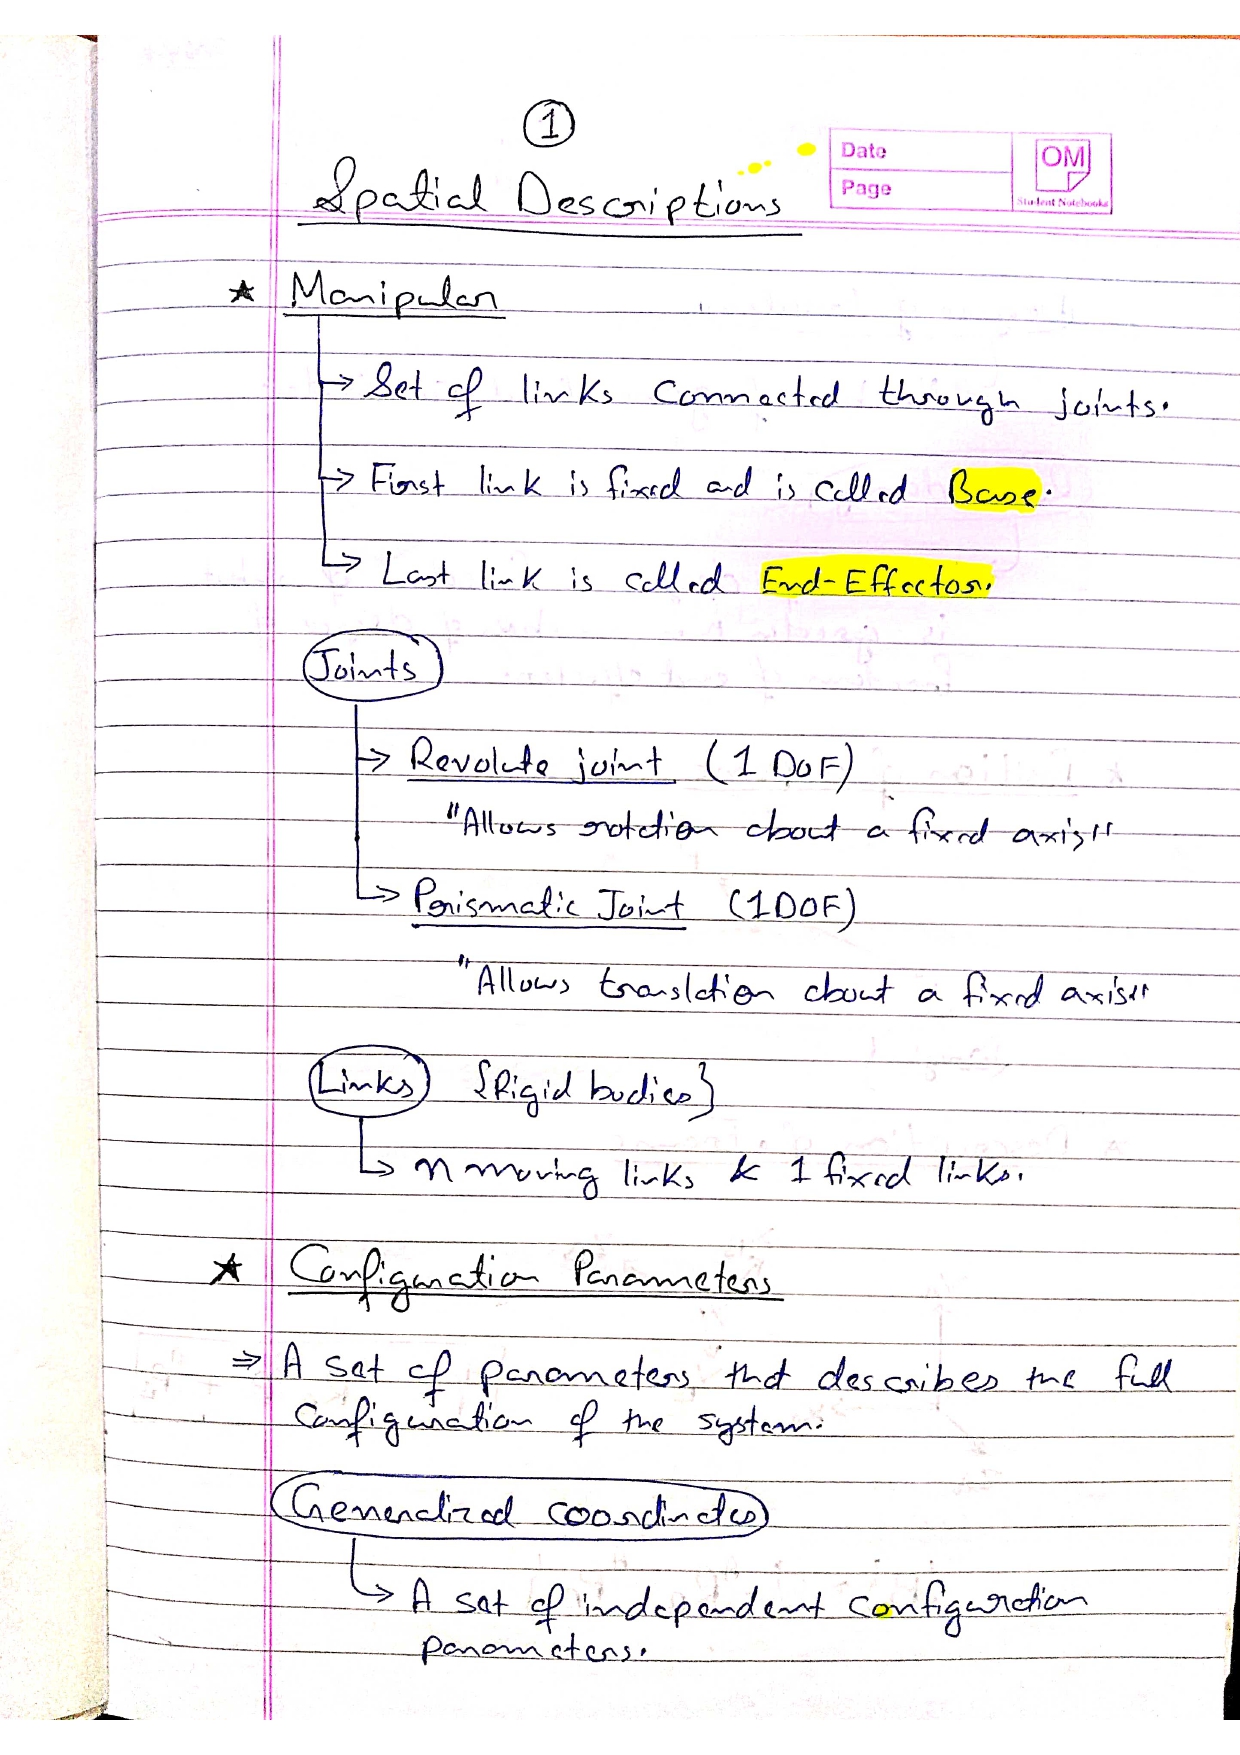 1
Date
OM
Page
Student Notebooks
Spatial Descriptions
★ Manipular
→ Set of links connected through joints.
→ First link is fixed and is called Base.
→ Last link is called End-Effector.
Joints
→ Revolute joint (1 DOF)
"Allows rotation about a fixed axis"
→ Prismatic Joint (1DOF)
"Allows translation about a fixed axis"
Links {Rigid bodies}
→ n moving links & 1 fixed links.
★ Configuration Parameters
⇒ A set of parameters that describes the full
configuration of the system.
Generalized coordinates
→ A set of independent configuration
parameters.